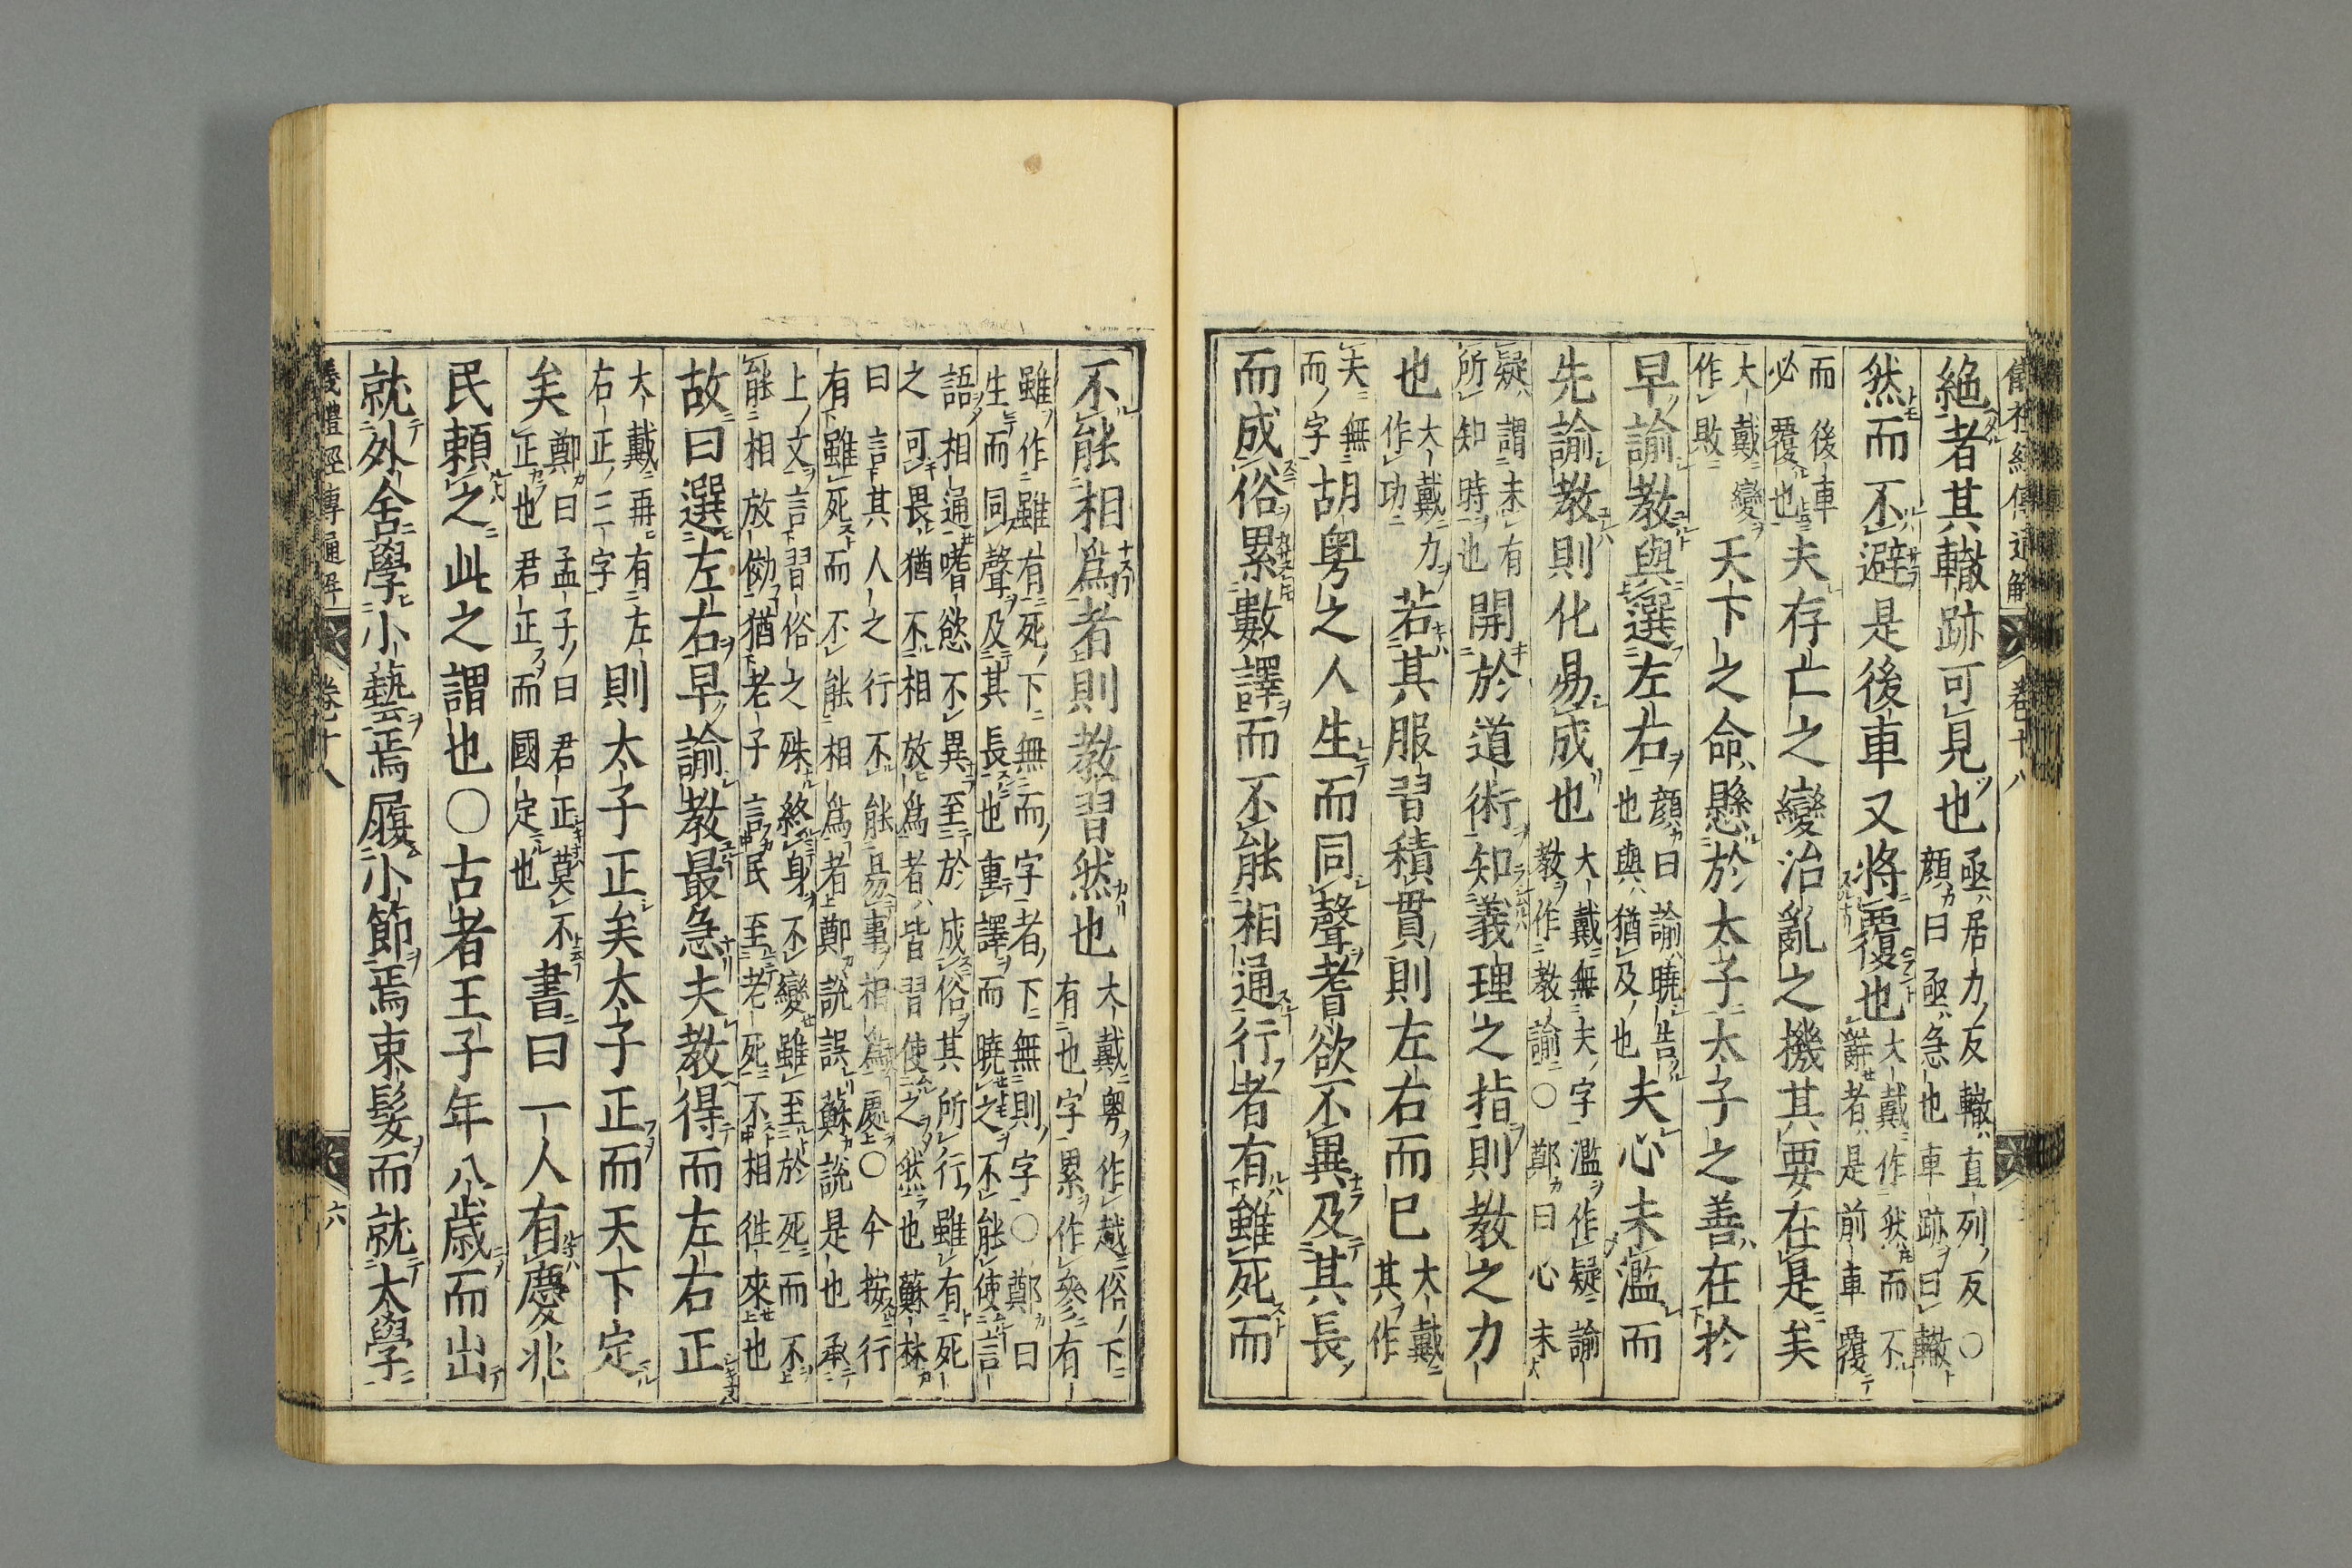 儀禮經傳通解 卷十八
絶者其轍跡可見也
亟居力反轍直列反○
顔曰亟急也車跡曰轍
然而不避是後車又將覆也
大戴作然而不
辭者是前車覆
而後車
必覆也
夫存亡之變治亂之機其要在是矣
大戴變
作敗
天下之命懸於太子太子之善在於
早諭教與選左右
顔曰諭曉告
也與猶及也
夫心未濫而
先諭教則化易成也
大戴無夫字濫作疑諭
教作教諭○鄭曰心未
疑謂未有
所知時也
開於道術知義理之指則教之力
也
大戴力
作功
若其服習積貫則左右而已
大戴
其作
夫無
而字
胡粤之人生而同聲耆欲不異及其長
而成俗累數譯而不能相通行者有雖死而
不能相爲者則教習然也
大戴粤作越俗下
有也字累作參有
雖作雖有死下無而字者下無則字○鄭曰
生而同聲及其長也重譯而曉之不能使言
語相通嗜慾不異至於成俗其所行雖有死
之可畏猶不相放爲者皆習使之然也蘇林
曰言其人之行不能易事相爲處○今按行
有雖死而不能相爲者鄭説誤蘇説是也承
上文言習俗之殊終身不變雖至於死而不
能相放傚猶老子言民至老死不相徃來也
故曰選左右早諭教最急夫教得而左右正
大戴再有左
右正三字
則太子正矣太子正而天下定
矣
鄭曰孟子曰君正莫不
正也君正而國定也
書曰一人有慶兆
民頼之此之謂也○古者王子年八歳而出
就外舍學小藝焉履小節焉束髮而就大學
儀禮經傳通解 卷十八 六